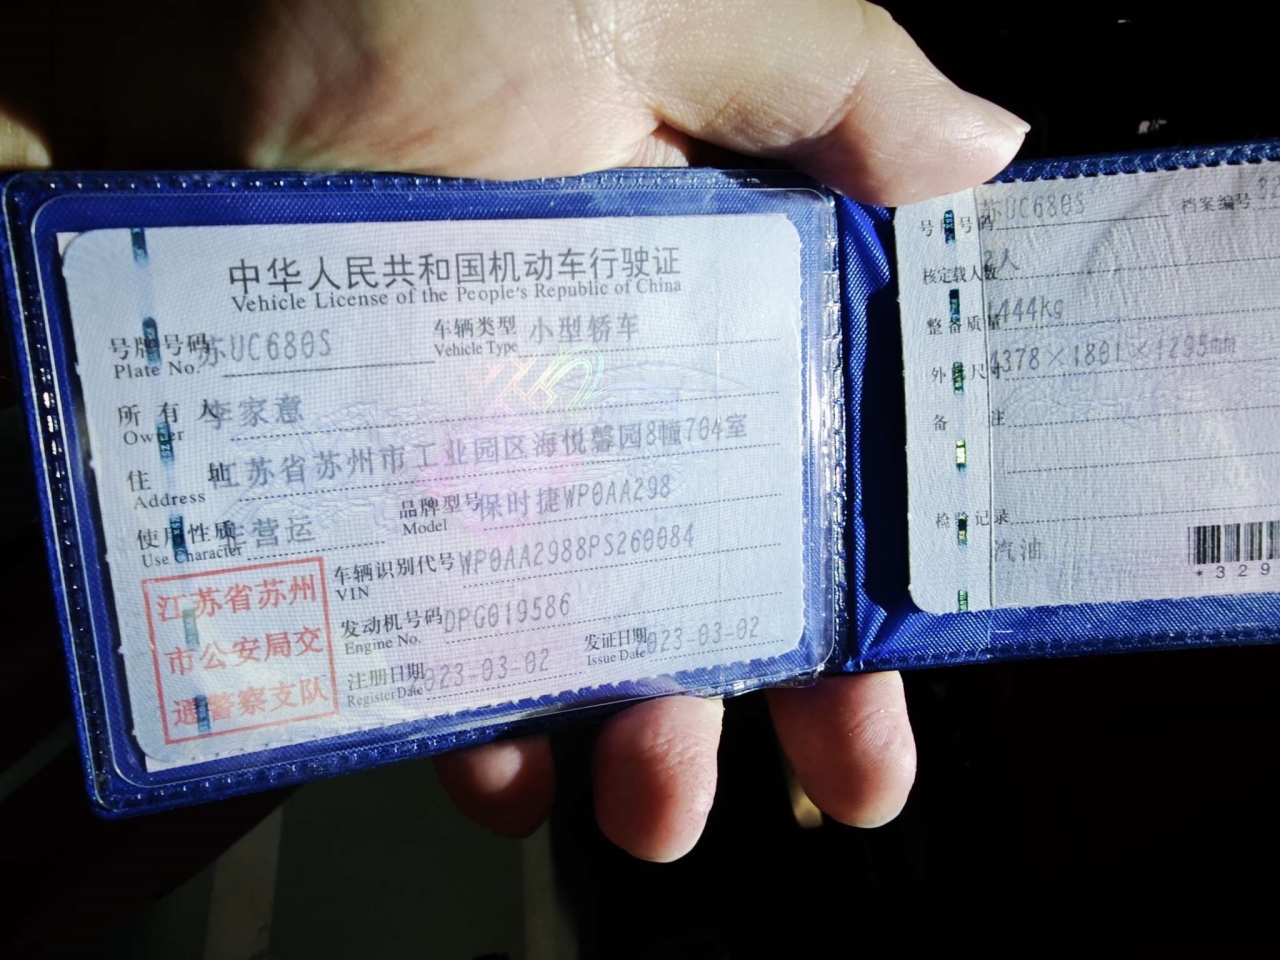 中华人民共和国机动车行驶证
Vehicle License of the People's Republic of China
号牌号码 苏UC680S 车辆类型 小型轿车
Plate No. Vehicle Type
所有人 李家意
Owner
住址 江苏省苏州市工业园区海悦馨园8幢704室
Address
使用性质 非营运 品牌型号 保时捷WP0AA298
Use Character Model
车辆识别代号 WP0AA2988PS260084
VIN
发动机号码 DPG019586
Engine No.
注册日期 023-03-02 发证日期 023-03-02
Register Date Issue Date
江苏省苏州
市公安局交
通警察支队
号牌号码 苏UC680S 档案编号
核定载人数 2人
整备质量 1444kg
外廓尺寸 4378×1801×1295mm
备注
检验记录
汽油
*329